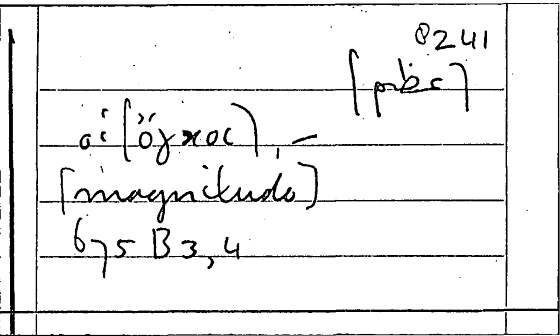 8241
οἱ [ὄγκος], –
[magnitudo]
675 B 3, 4